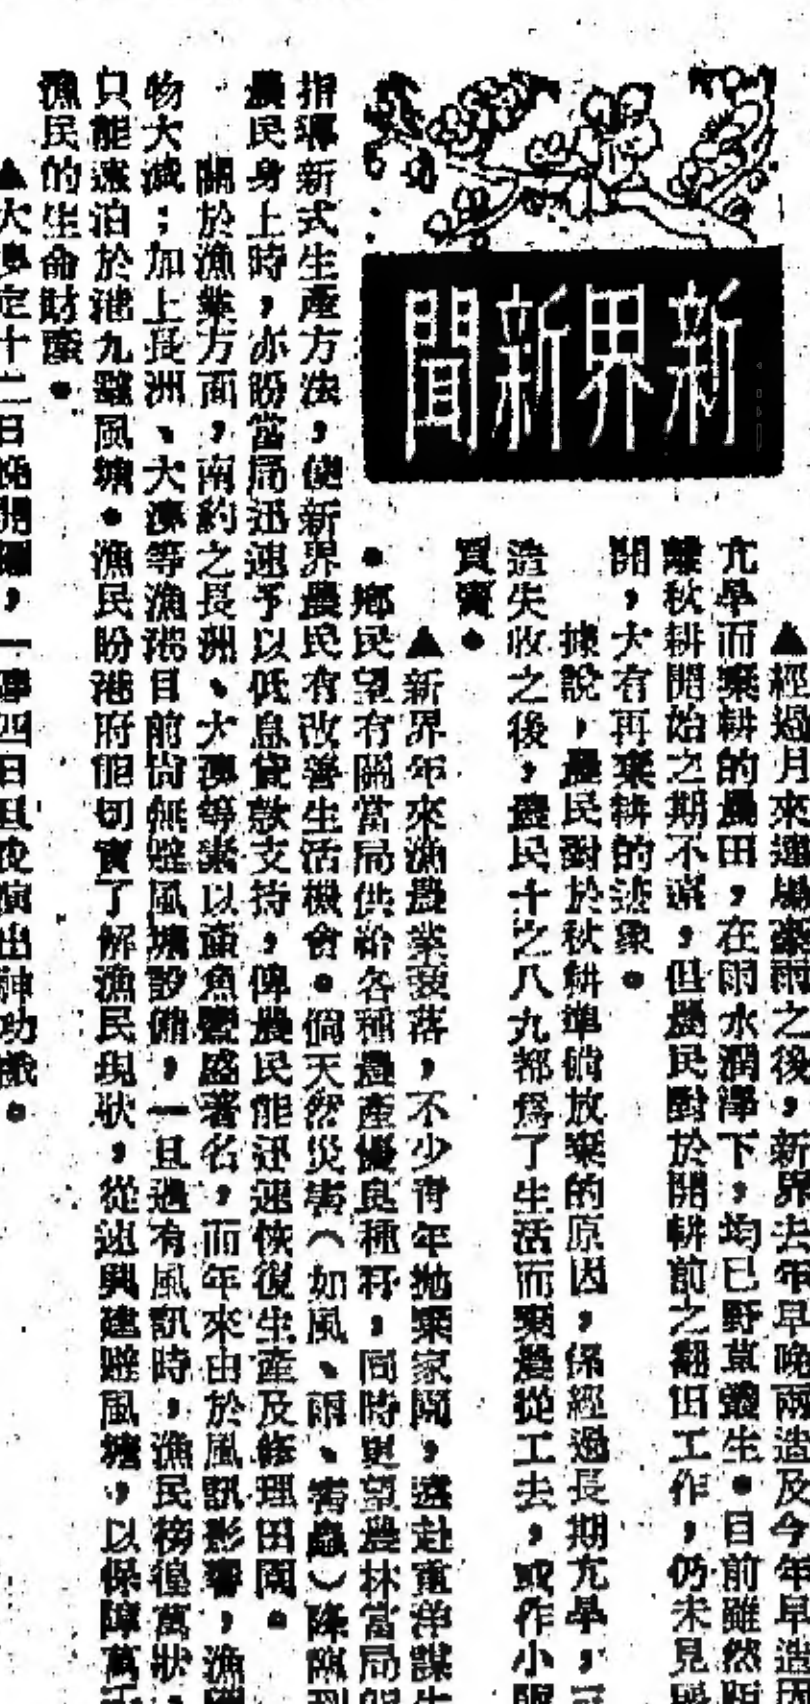 新界新聞
▲經過月來連場豪雨之後，新界去年早晚兩造及今年早造因
亢旱而棄耕的農田，在雨水潤澤下，均已野草叢生。目前雖然距
離秋耕開始之期不遠，但農民對於開耕前之翻田工作，仍未見展
開，大有再棄耕的迹象。
據說，農民對於秋耕準備放棄的原因，係經過長期亢旱，
造失收之後，農民十之八九都為了生活而棄農從工去，或作小販
買賣。
▲新界年來漁農業衰落，不少青年拋棄家園，遠赴重洋謀生
。鄉民望有關當局供給各種農產優良種籽，同時更望農林當局能
指導新式生產方法，使新界農民有改善生活機會。倘天然災害（如風、雨、害蟲）降臨到
農民身上時，亦盼當局迅速予以低息貸款支持，俾農民能迅速恢復生產及修理田園。
關於漁業方面，南約之長洲、大澳等素以產魚豐盛著名，而年來由於風訊影響，漁
物大減；加上長洲、大澳等漁港目前尚無避風塘設備，一旦遇有風訊時，漁民徬徨萬狀，
只能遠泊於港九避風塘。漁民盼港府能切實了解漁民現狀，從速興建避風塘，以保障萬千
漁民的生命財產。
▲大澳定十二日晚開鑼，一連四日且夜演出神功戲。